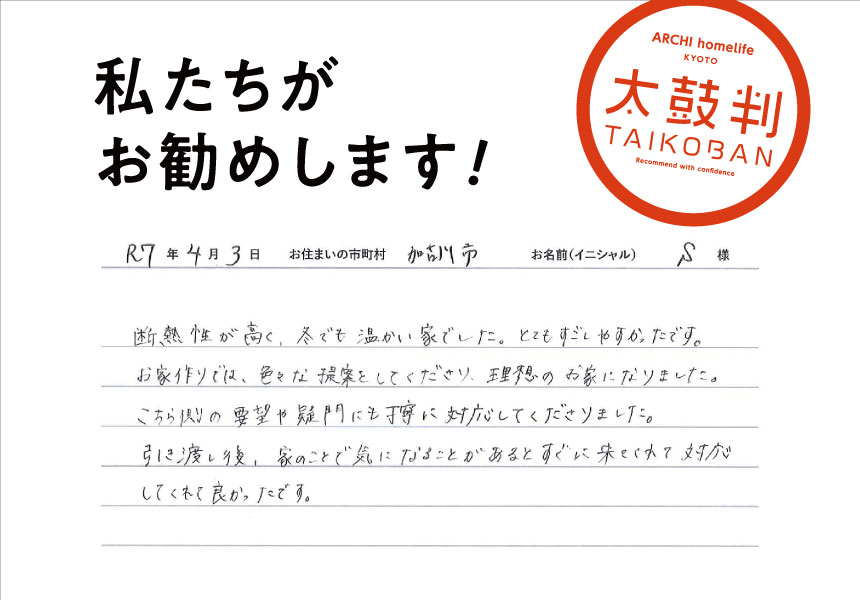 私たちが
お勧めします!
ARCHI homelife
KYOTO
太鼓判
TAIKOBAN
Recommend with confidence
R7年4月3日 お住まいの市町村 加古川市 お名前(イニシャル) S 様
断熱性が高く、冬でも温かい家でした。とてもすごしやすかったです。
お家作りでは、色々な提案をしてくださり、理想のお家になりました。
こちら側の要望や疑問にも丁寧に対応してくださりました。
引き渡し後、家のことで気になることがあるとすぐに来てくれて対応
してくれて良かったです。